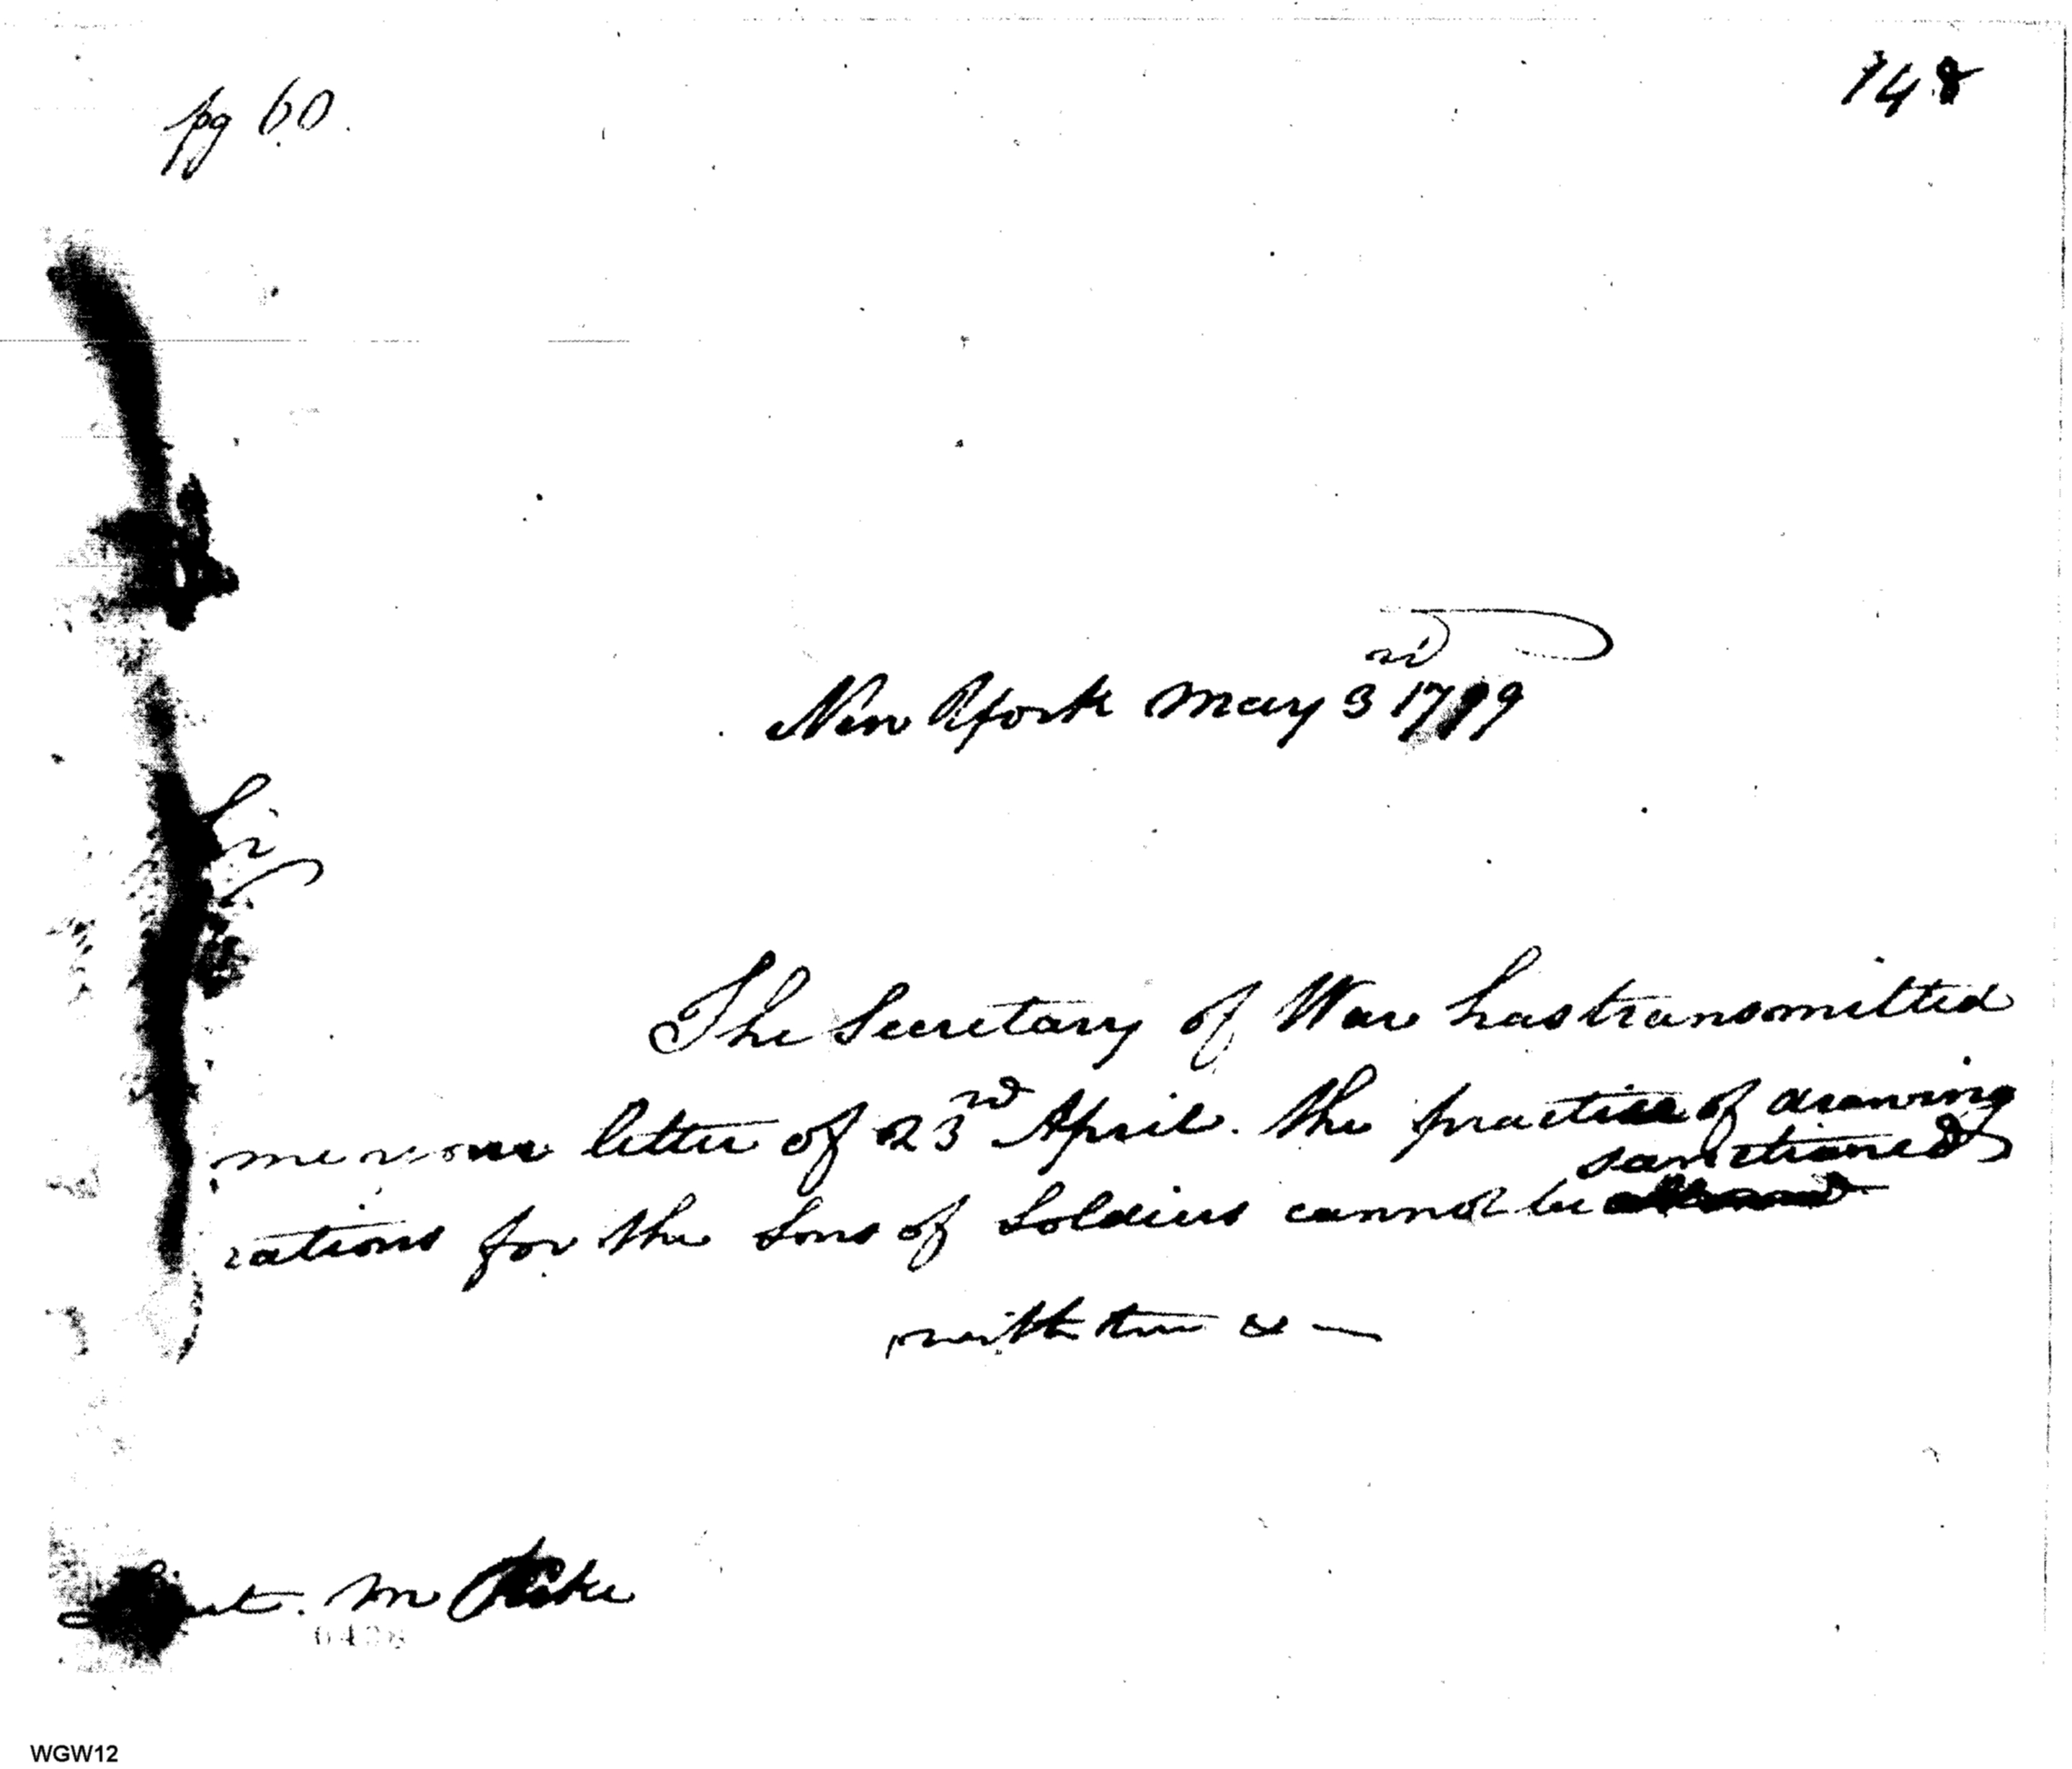 pg 60.
148
New York May 3rd 1799
Sir
The Secretary of War has transmitted
me your letter of 23rd April. the practice of drawing
sanctioned
rations for the Sons of Soldiers cannot be
with true &
Lieut. M Pike
0428
WGW12